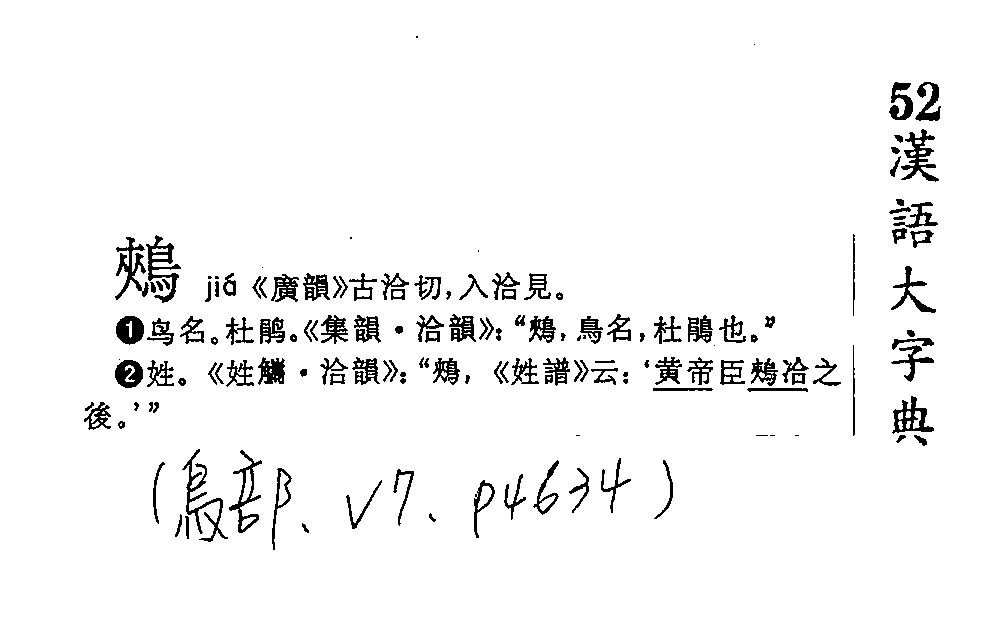 52
漢語大字典
鵊 jiá《廣韻》古洽切,入洽見。
❶鸟名。杜鹃。《集韻·洽韻》:“鵊,鳥名,杜鵑也。”
❷姓。《姓觿·洽韻》:“鵊,《姓譜》云:‘黄帝臣鵊冾之
後。’”
(鳥部、v7、p4634)